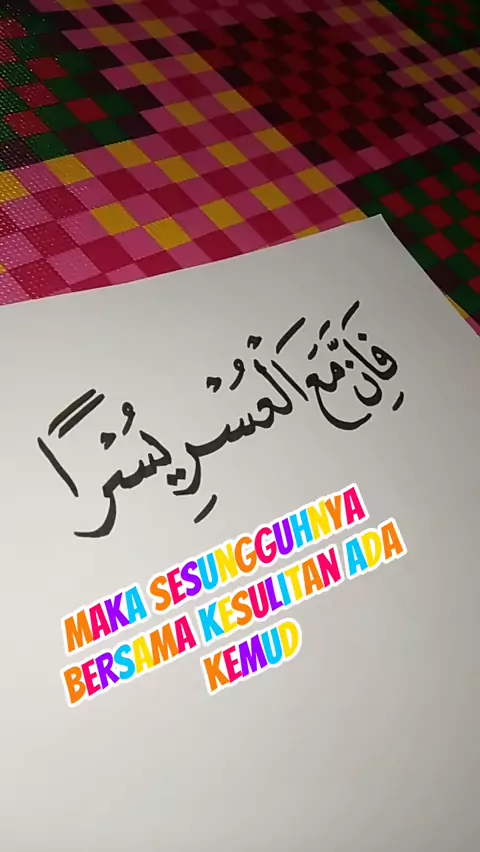 فَاِنَّ مَعَ الْعُسْرِ يُسْرًا
MAKA SESUNGGUHNYA
BERSAMA KESULITAN ADA
KEMUD